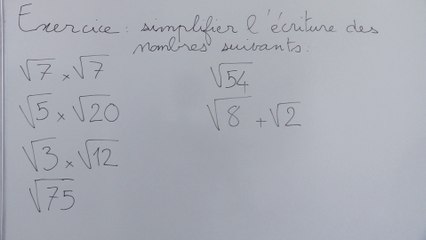 Exercice : simplifier l'écriture des
nombres suivants :
√7 × √7
√5 × √20
√3 × √12
√75
√54
√8 + √2